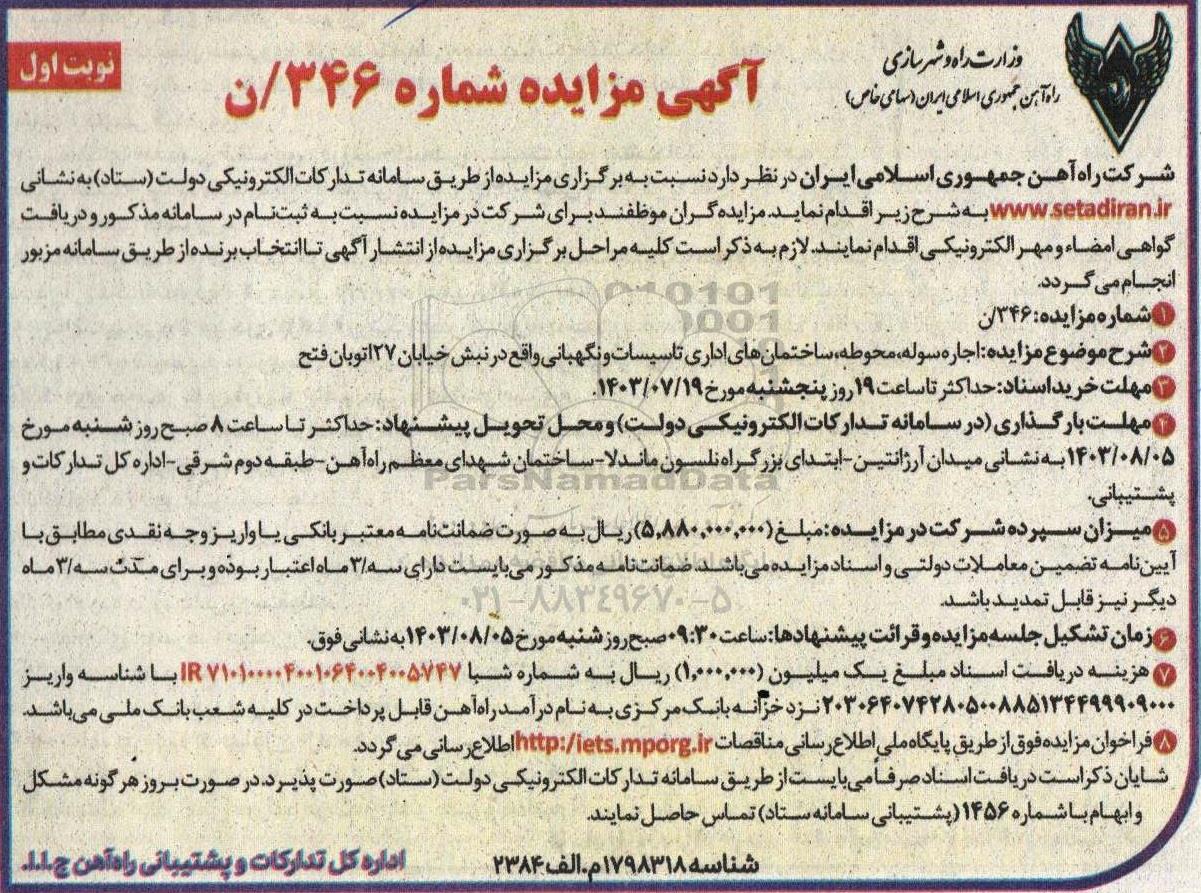 وزارت راه و شهرسازی
راه آهن جمهوری اسلامی ایران (سهامی خاص)
آگهی مزایده شماره ۳۴۶/ن
نوبت اول
شرکت راه آهن جمهوری اسلامی ایران در نظر دارد نسبت به برگزاری مزایده از طریق سامانه تدارکات الکترونیکی دولت (ستاد) به نشانی
www.setadiran.ir به شرح زیر اقدام نماید. مزایده گران موظفند برای شرکت در مزایده نسبت به ثبت نام در سامانه مذکور و دریافت
گواهی امضاء و مهر الکترونیکی اقدام نمایند. لازم به ذکر است کلیه مراحل برگزاری مزایده از انتشار آگهی تا انتخاب برنده از طریق سامانه مزبور
انجام می گردد.
۱ شماره مزایده: ۳۴۶/ن
۲ شرح موضوع مزایده: اجاره سوله، محوطه، ساختمان های اداری تاسیسات و نگهبانی واقع در نبش خیابان ۲۷ اتوبان فتح
۳ مهلت خرید اسناد: حداکثر تا ساعت ۱۹ روز پنجشنبه مورخ ۱۴۰۳/۰۷/۱۹.
۴ مهلت بارگذاری (در سامانه تدارکات الکترونیکی دولت) و محل تحویل پیشنهاد: حداکثر تا ساعت ۸ صبح روز شنبه مورخ
۱۴۰۳/۰۸/۰۵ به نشانی میدان آرژانتین-ابتدای بزرگراه نلسون ماندلا- ساختمان شهدای معظم راه آهن-طبقه دوم شرقی-اداره کل تدارکات و
پشتیبانی.
۵ میزان سپرده شرکت در مزایده: مبلغ (۵,۸۸۰,۰۰۰,۰۰۰) ریال به صورت ضمانت نامه معتبر بانکی یا واریز وجه نقدی مطابق با
آیین نامه تضمین معاملات دولتی و اسناد مزایده می باشد. ضمانت نامه مذکور می بایست دارای سه/۳ ماه اعتبار بوده و برای مدت سه/۳ ماه
دیگر نیز قابل تمدید باشد.
۶ زمان تشکیل جلسه مزایده و قرائت پیشنهادها: ساعت ۰۹:۳۰ صبح روز شنبه مورخ ۱۴۰۳/۰۸/۰۵ به نشانی فوق.
۷ هزینه دریافت اسناد مبلغ یک میلیون (۱,۰۰۰,۰۰۰) ریال به شماره شبا IR ۷۱۰۱۰۰۰۰۴۰۰۱۰۶۴۰۰۴۰۰۵۷۴۷ با شناسه واریز
۲۰۳۰۶۴۰۷۴۲۸۰۵۰۰۸۸۵۱۳۴۴۹۹۹۰۹۰۰۰ نزد خزانه بانک مرکزی به نام درآمد راه آهن قابل پرداخت در کلیه شعب بانک ملی می باشد.
۸ فراخوان مزایده فوق از طریق پایگاه ملی اطلاع رسانی مناقصات http:/iets.mporg.ir اطلاع رسانی می گردد.
شایان ذکر است دریافت اسناد صرفاً می بایست از طریق سامانه تدارکات الکترونیکی دولت (ستاد) صورت پذیرد. در صورت بروز هرگونه مشکل
و ابهام با شماره ۱۴۵۶ (پشتیبانی سامانه ستاد) تماس حاصل نمایند.
شناسه ۱۷۹۸۳۱۸ م.الف ۲۳۸۴
اداره کل تدارکات و پشتیبانی راه آهن ج.ا.ا.
ParsNamadData
۰۲۱-۸۸۳۴۹۶۷۰-۵